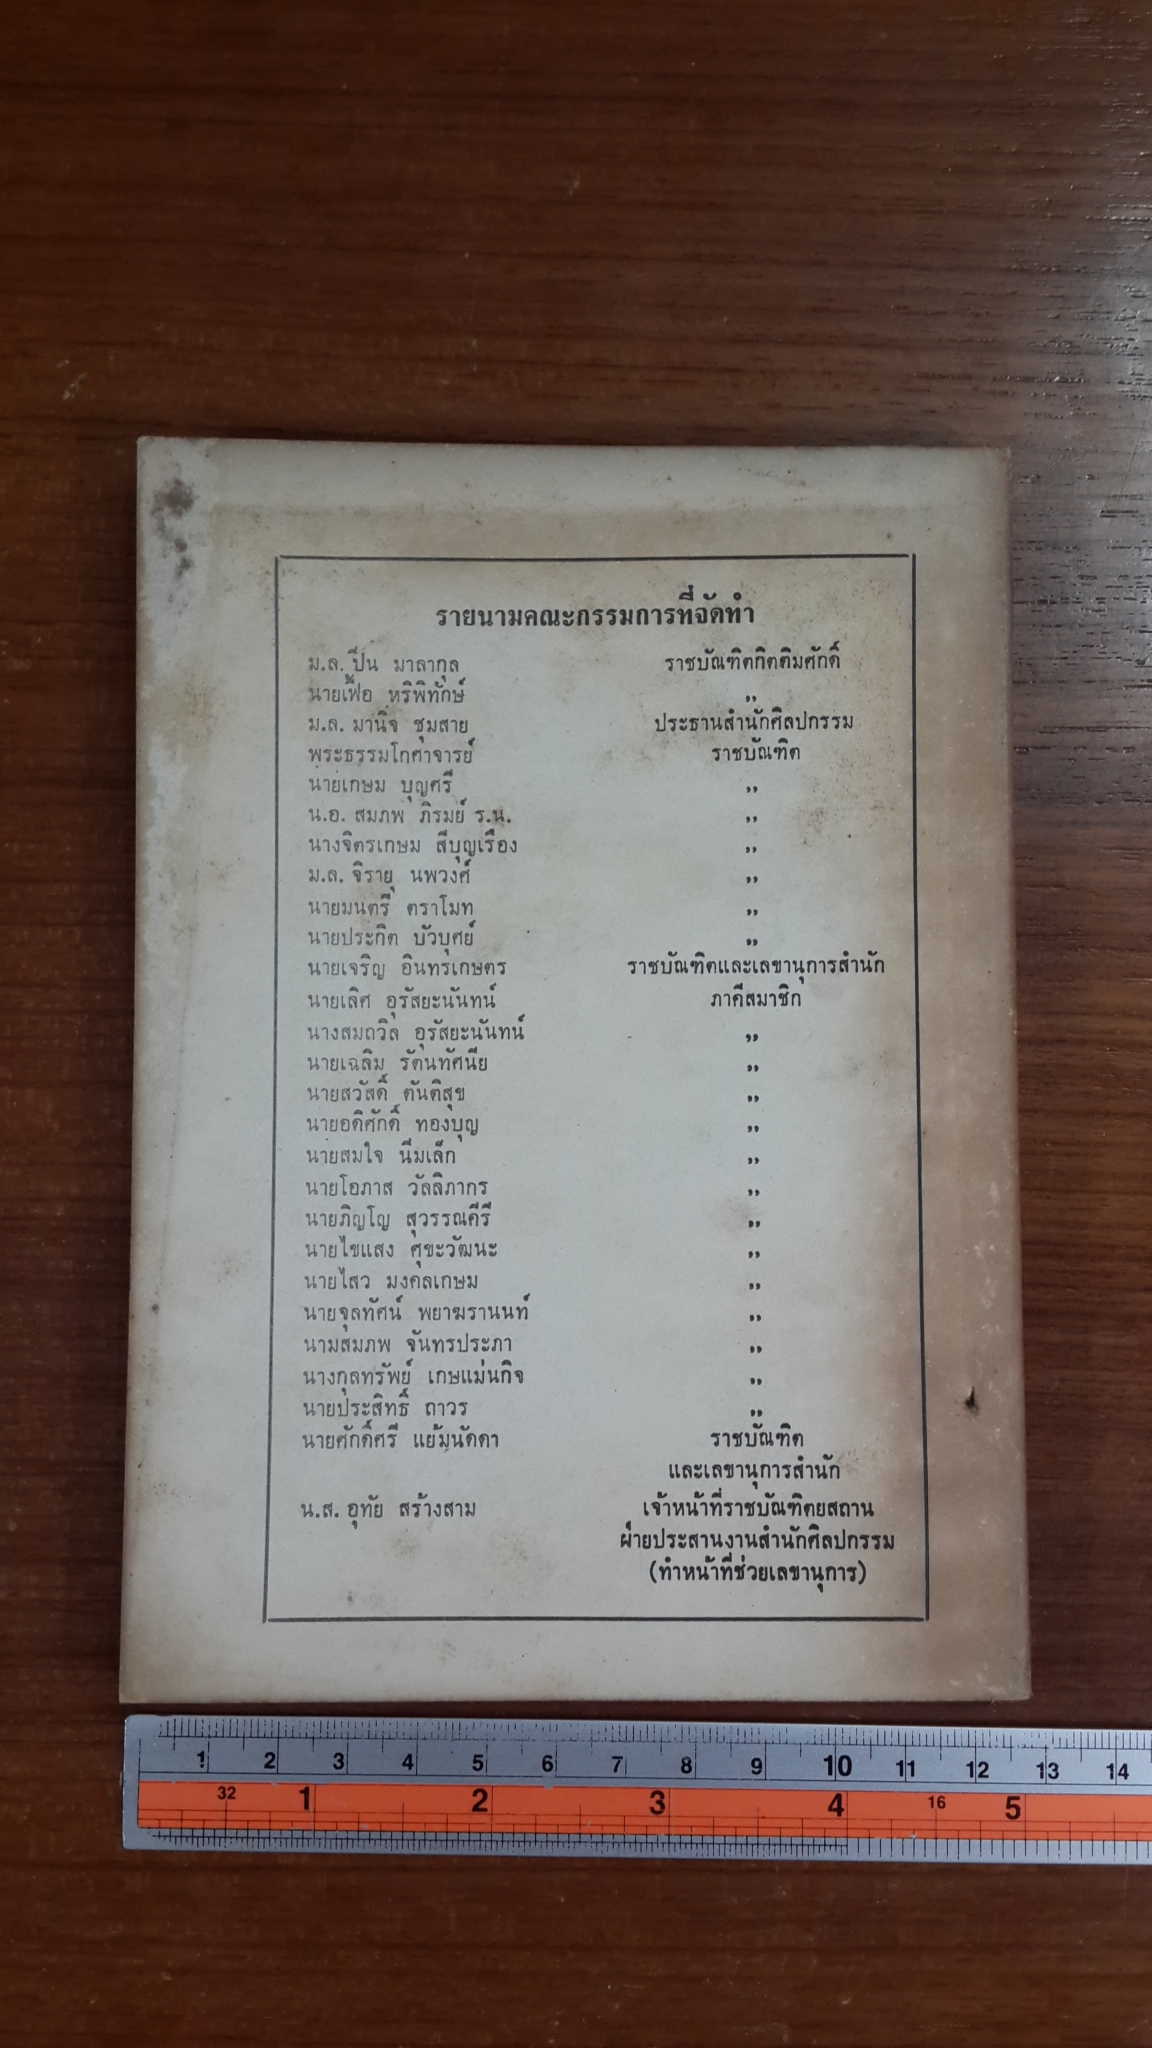 รายนามคณะกรรมการที่จัดทำ
ม.ล. ปิ่น มาลากุล ราชบัณฑิตกิตติมศักดิ์
นายเฟื้อ หริพิทักษ์ ,,
ม.ล. มานิจ ชุมสาย ประธานสำนักศิลปกรรม
พระธรรมโกศาจารย์ ราชบัณฑิต
นายเกษม บุญศรี ,,
น.อ. สมภพ ภิรมย์ ร.น. ,,
นางจิตรเกษม สีบุญเรือง ,,
ม.ล. จิรายุ นพวงศ์ ,,
นายมนตรี ตราโมท ,,
นายประกิต บัวบุศย์ ,,
นายเจริญ อินทรเกษตร ราชบัณฑิตและเลขานุการสำนัก
นายเลิศ อุรัสยะนันทน์ ภาคีสมาชิก
นางสมถวิล อุรัสยะนันทน์ ,,
นายเฉลิม รัตนทัศนีย ,,
นายสวัสดิ์ ตันติสุข ,,
นายอดิศักดิ์ ทองบุญ ,,
นายสมใจ นิ่มเล็ก ,,
นายโอภาส วัลลิภากร ,,
นายภิญโญ สุวรรณคีรี ,,
นายไขแสง ศุขะวัฒนะ ,,
นายไสว มงคลเกษม ,,
นายจุลทัศน์ พยาฆรานนท์ ,,
นามสมภพ จันทรประภา ,,
นางกุลทรัพย์ เกษแม่นกิจ ,,
นายประสิทธิ์ ถาวร ,,
นายศักดิ์ศรี แย้มนัดดา ราชบัณฑิต
และเลขานุการสำนัก
น.ส. อุทัย สร้างสาม เจ้าหน้าที่ราชบัณฑิตยสถาน
ฝ่ายประสานงานสำนักศิลปกรรม
(ทำหน้าที่ช่วยเลขานุการ)
1 2 3 4 5 6 7 8 9 10 11 12 13 14
32 1 2 3 4 16 5